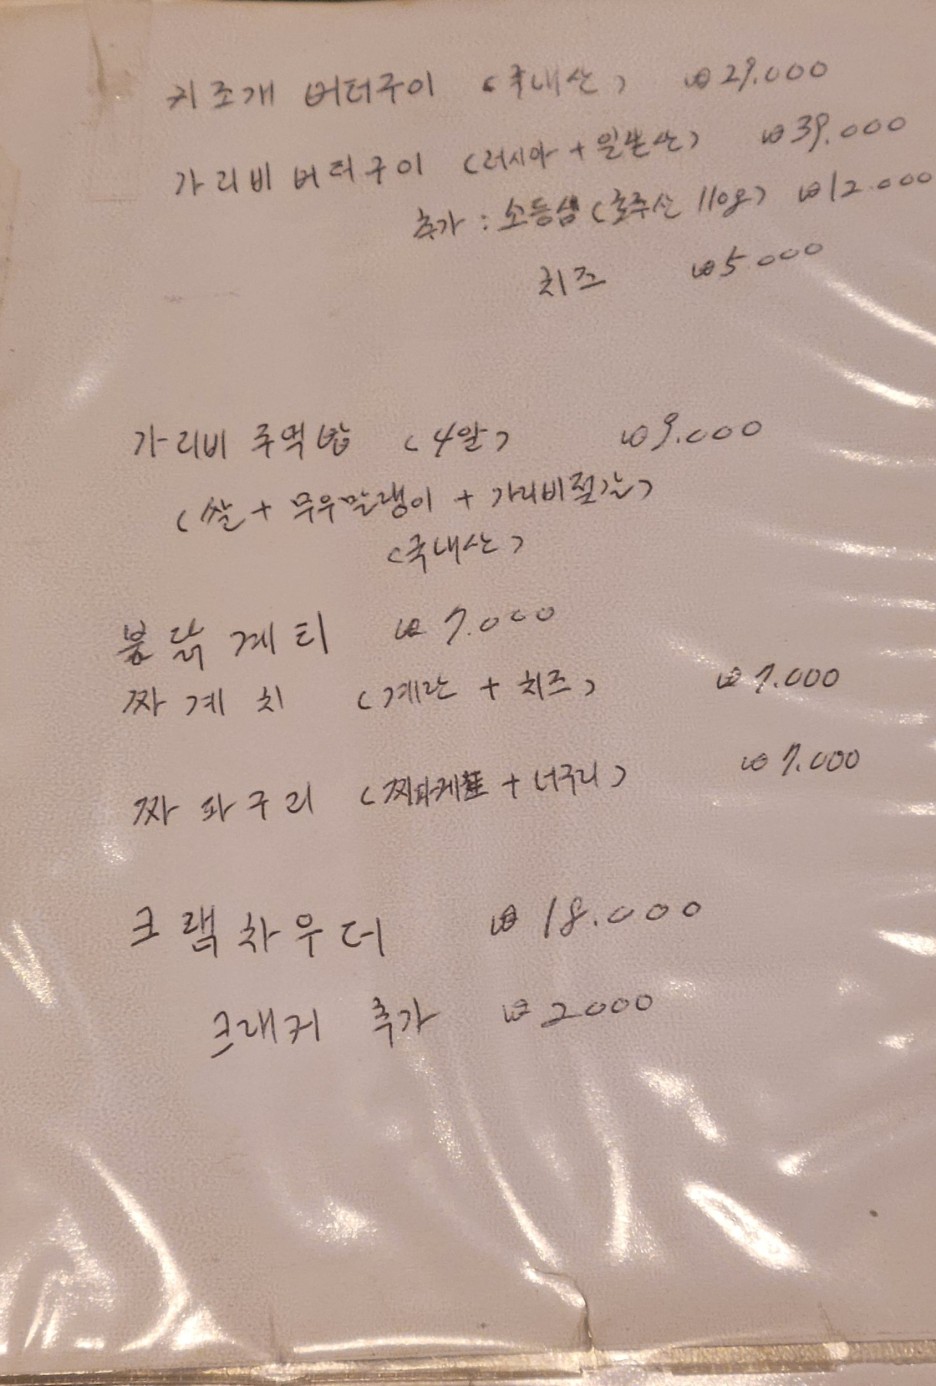 키조개 버터구이 (국내산) ₩29.000
가리비버터구이 (러시아+일본산) ₩39.000
추가 : 소등심(호주산 110g) ₩12.000
치즈 ₩5.000
가리비 주먹밥 (4알) ₩9.000
(쌀+무우말랭이+가리비젓갈)
(국내산)
붕닭계티 ₩7.000
짜계치 (계란+치즈) ₩7.000
짜파구리 ( + 너구리) ₩7.000
크램차우더 ₩18.000
크래커 추가 ₩2000